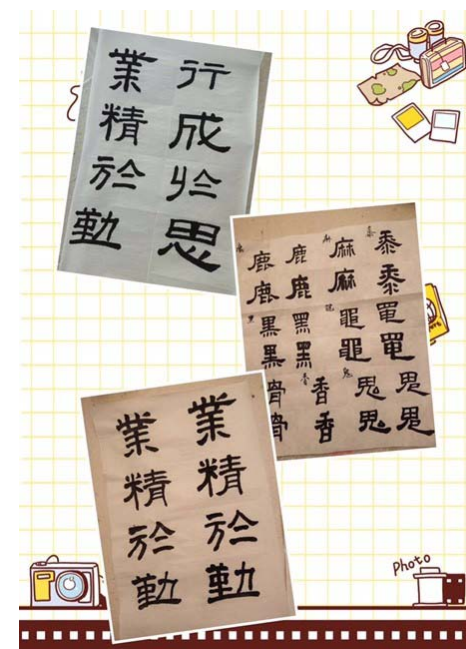 業精於勤
行成於思
黍黍黽黽鬼鬼
麻麻黽黽鬼鬼
鹿鹿黑黑香香
鹿鹿黑黑
業精於勤
業精於勤
Photo